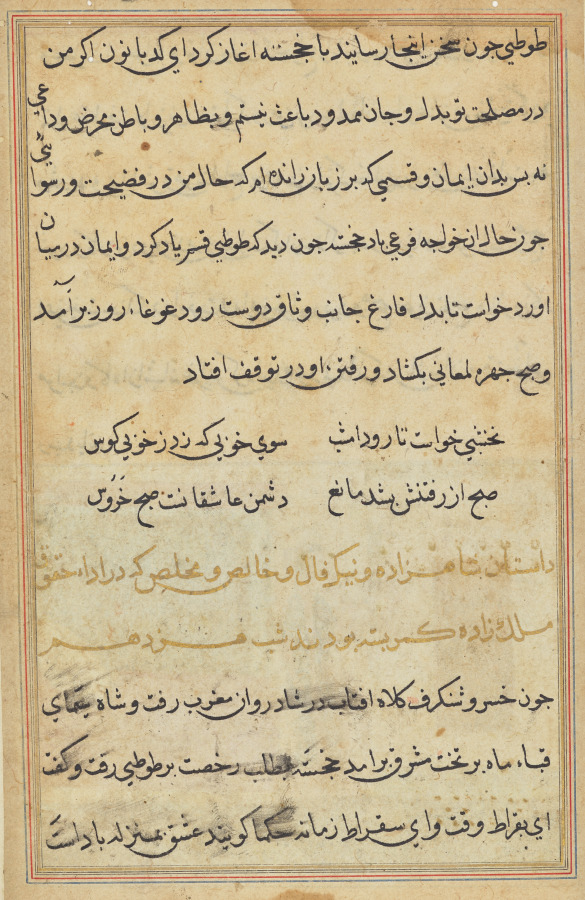 طوطی جون سخن اینجا رسانید با خجسته اغاز کرد ای کدبانون اکر من
در مصلحت تو بدل و جان ممد و دباعث نیستم و بظاهر و باطن محرض و داعی
نه بس بدان ایمان و قسمی که بر زبان رانده ام که حال من در فضیحت و رسوائی
جون حال ان خواجه فرعی باد خجسته جون دید که طوطی قسم یاد کرد و ایمان در میان
اورد خواست تا بدل فارغ جانب وثاق دوست رود غوغاء روز برآمد
وصبح جهره لمعانی بکشاد و رفتن او در توقف افتاد
نخشبی خواست تا رود امشب سوی خوبی که زد ز خوبی کوس
صبح از رفتنش بشد مانع دشمن عاشقانست صبح خروس
داستان شاهزاده و نیک فال و خالص و مخلص که در اداء حقوق
ملک زاده کمر بسته بودند شب هزدهم
جون خسرو شنکرف کلاه افتاب در شادروان مغرب رفت و شاه یغمای
قباء ماه بر تخت مشرق برامد خجسته بطلب رخصت بر طوطی رفت و کفت
ای بقراط وقت و ای سقراط زمانه حکما کویند عشق بمنزله باداست